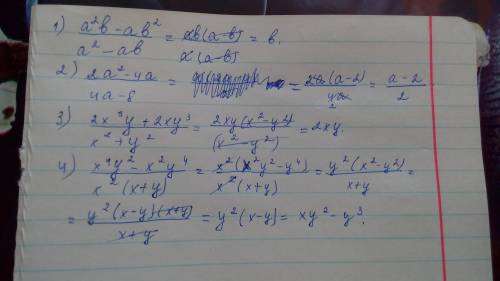 1) (a²b - ab²)/(a² - ab) = ab(a-b)/a(a-b) = b.
2) (2a² - 4a)/(4a-8) = = 2a(a-2)/4a 2 = (a-2)/2
3) (2x³y + 2xy³)/(x² + y²) = 2xy(x²-y²)/(x²-y²) = 2xy.
4) (x⁴y² - x²y⁴)/x²(x+y) = x²(x²y²-y⁴)/x²(x+y) = y²(x²-y²)/(x+y) =
= y²(x-y)(x+y)/(x+y) = y²(x-y) = xy² - y³.